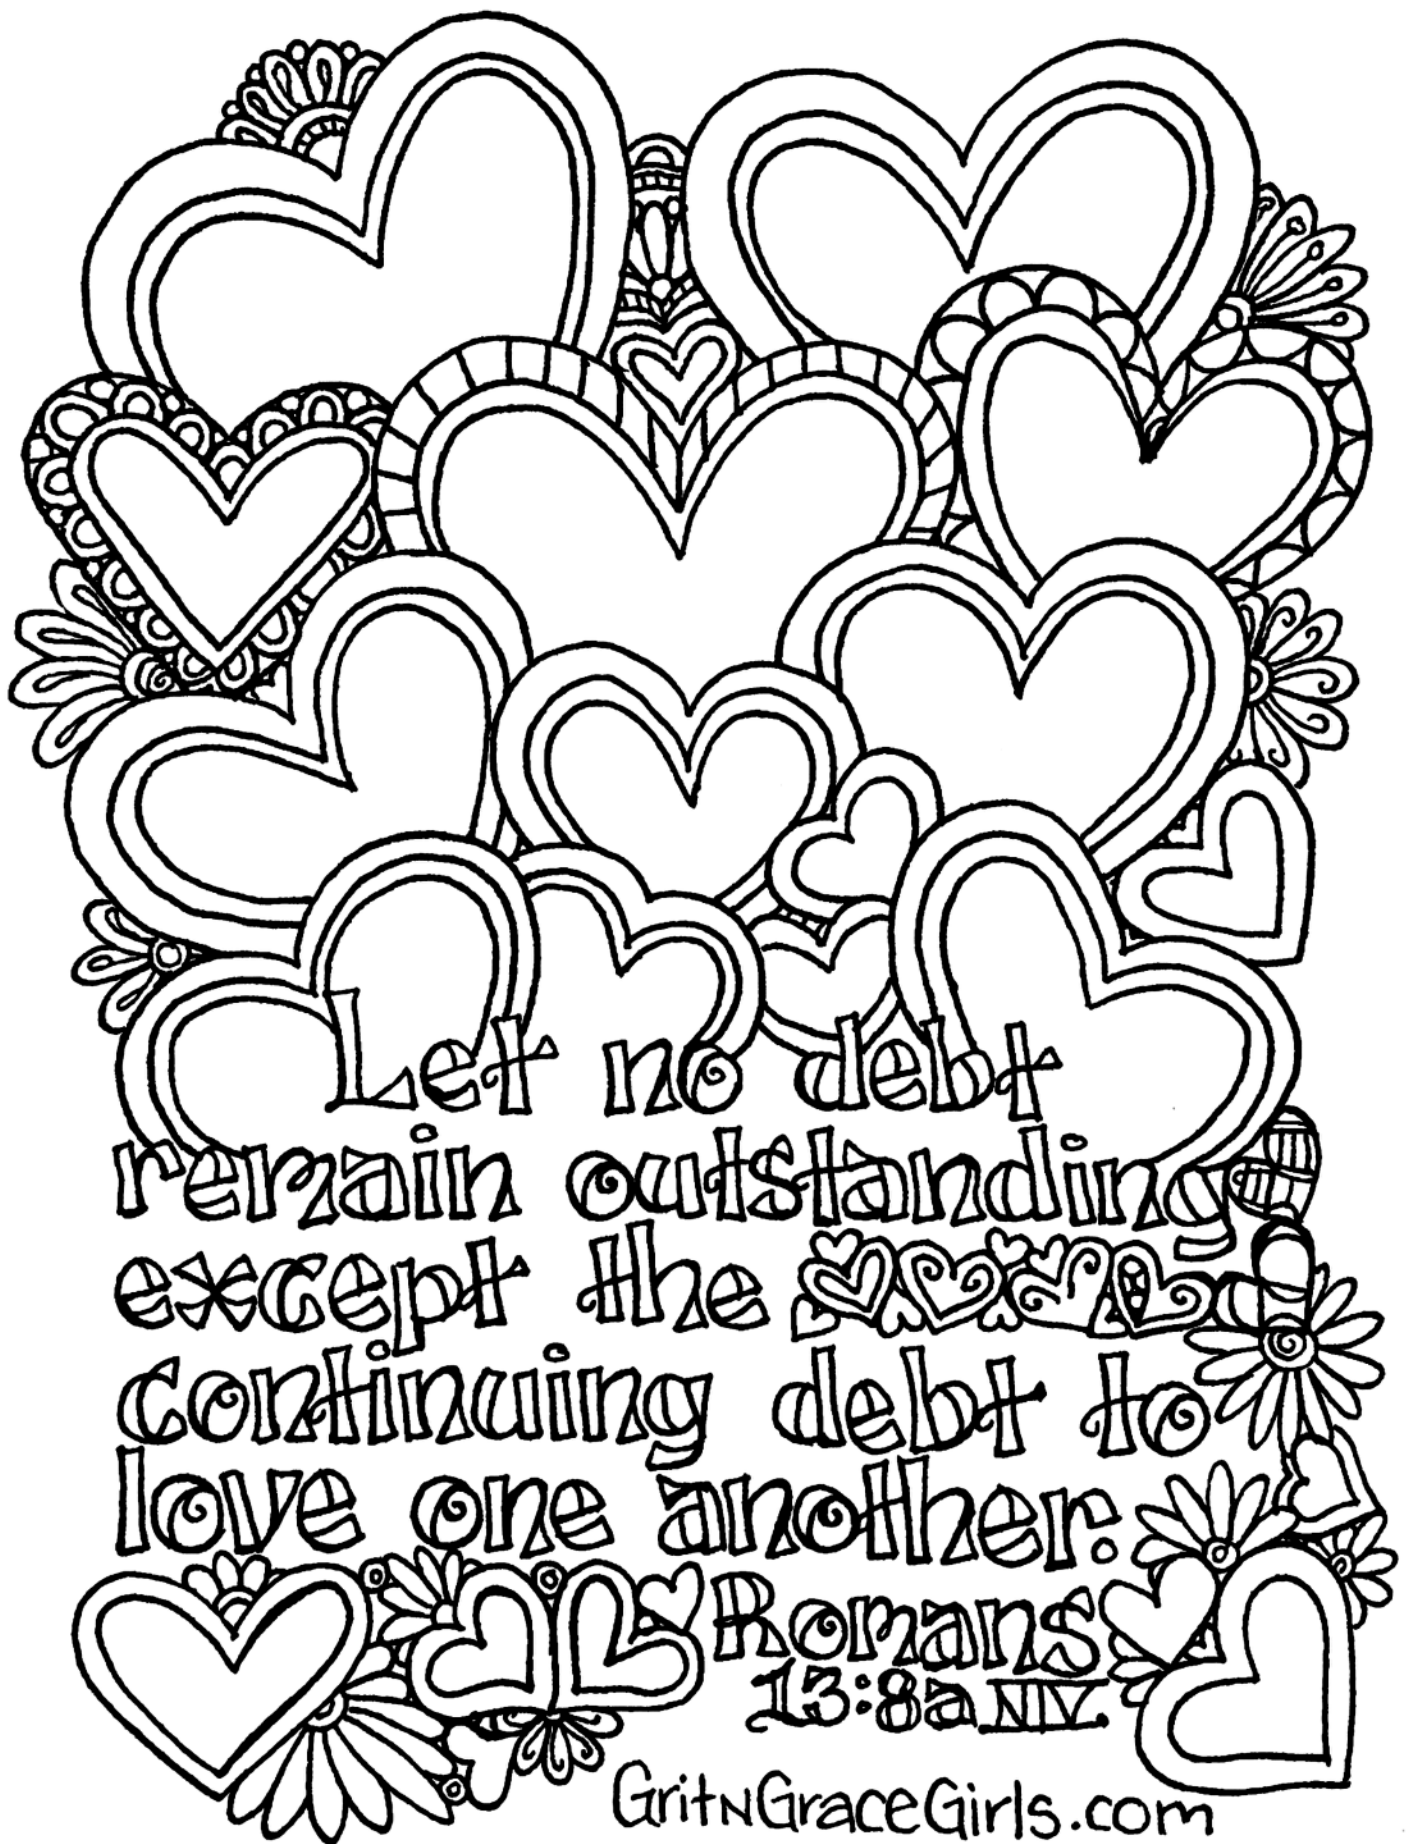 Let no debt
remain outstanding
except the
continuing debt to
love one another.
Romans
13:8a NIV.
GritNGraceGirls.com